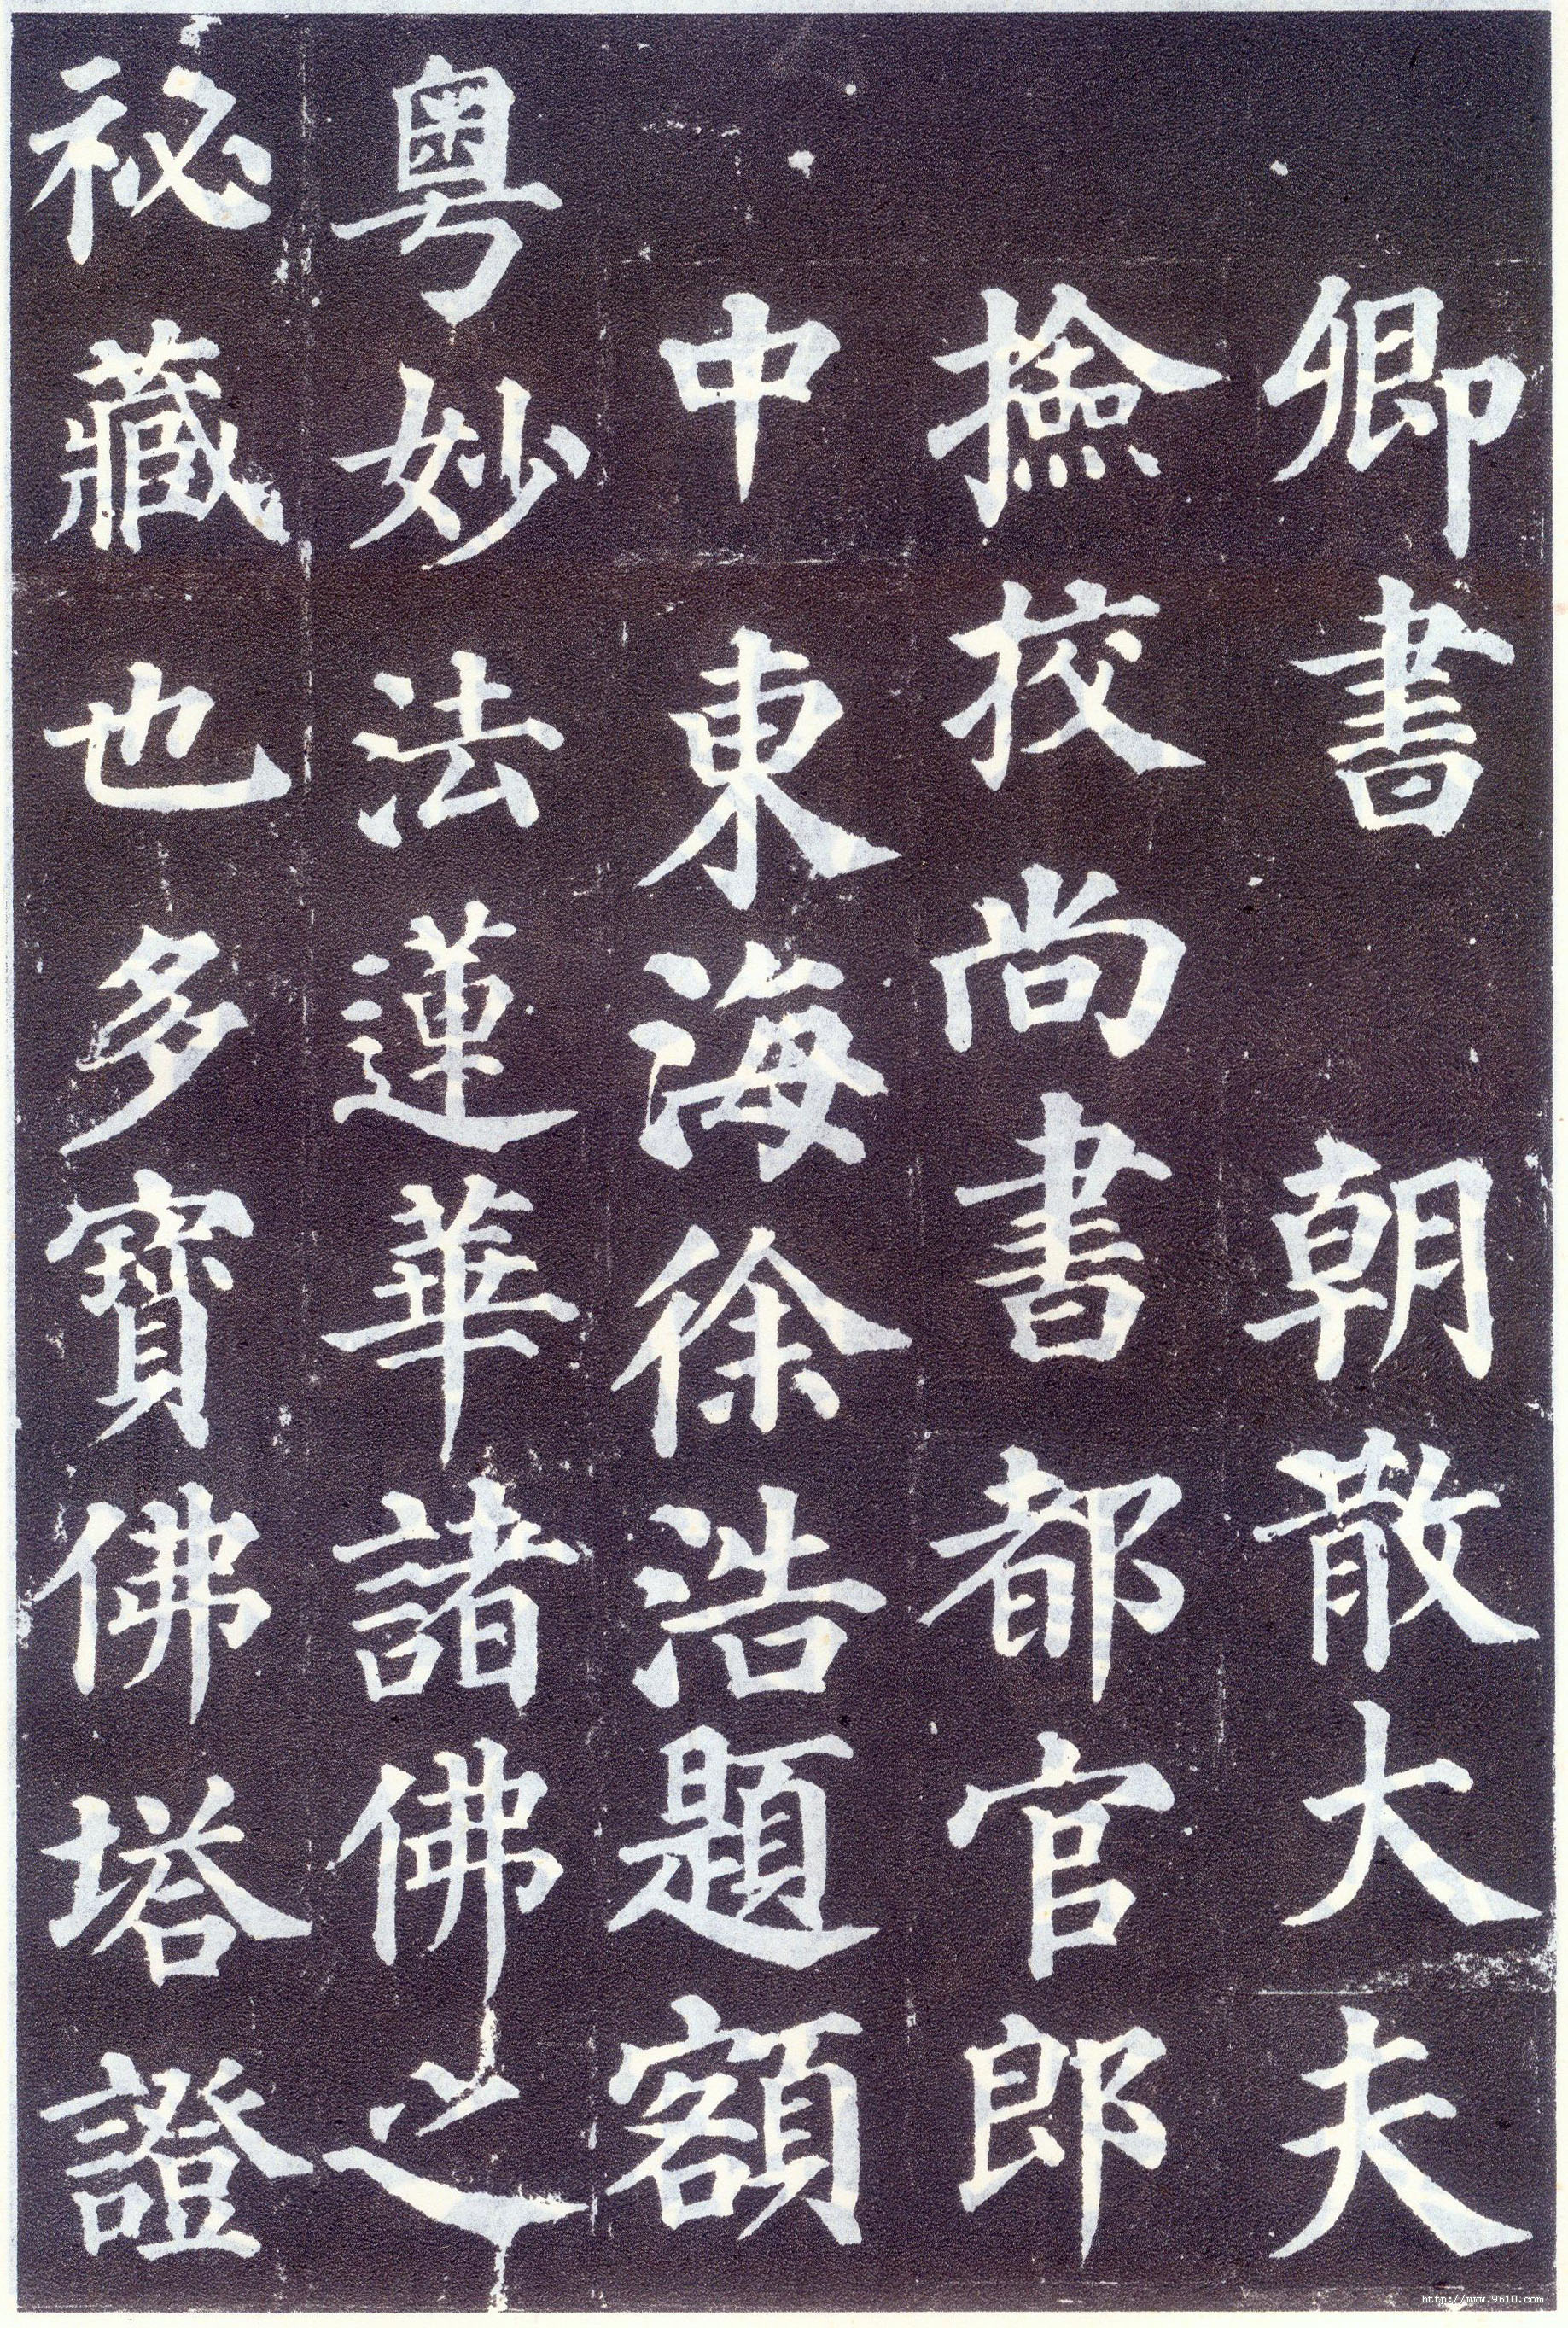 卿書　朝散大夫
撿挍尚書都官郎
中東海徐浩題額
粵妙法蓮華諸佛之
祕藏也多寶佛塔證
http://www.9610.com